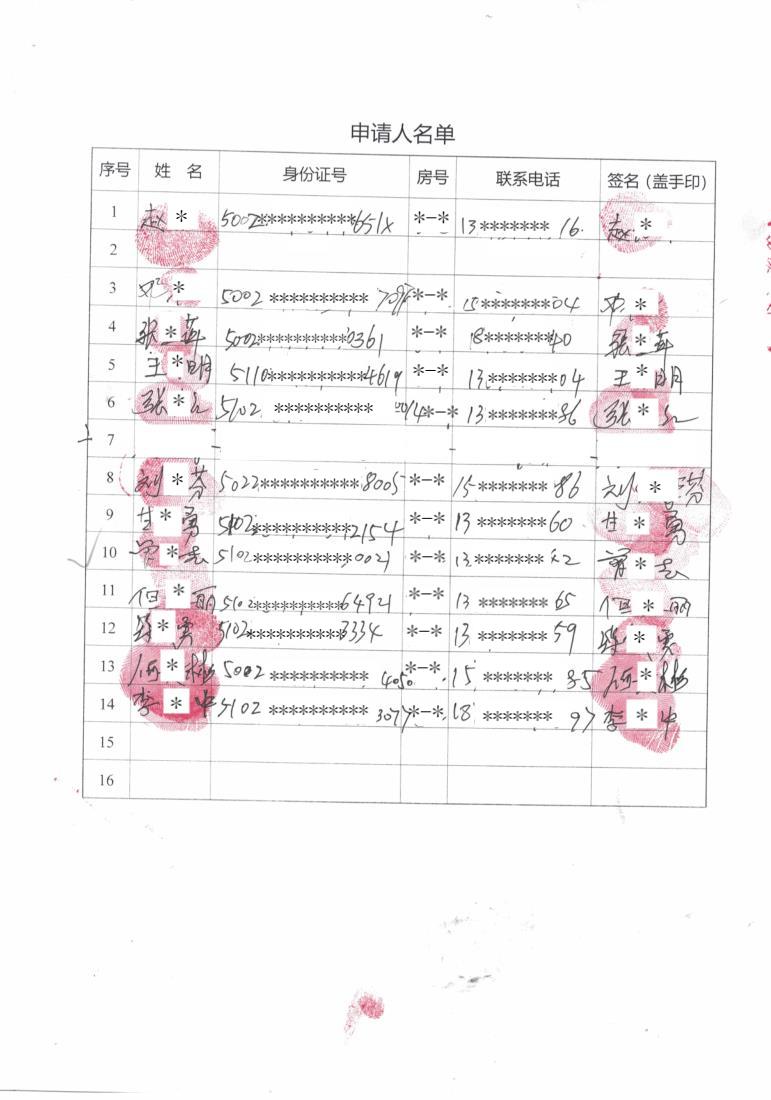 申请人名单
序号 姓 名 身份证号 房号 联系电话 签名（盖手印）
1 赵* 5002**********651X *-* 13*******16. 赵*
2
3 邓* 5002********** *-* 15*******04 邓*
4 张*燕 5002**********0361 *-* 18*******40 张*燕
5 王*明 5110**********4619 *-* 13*******04 王*明
6 张* 5102********** *-* 13*******86 张*
7
8 刘*芬 5022**********8005 *-* 15*******86 刘*芬
9 甘*勇 5102**********2154 *-* 13*******60 甘*勇
10 曾*志 5102**********0021 *-* 13******* 曾*志
11 但*丽 5102**********64921 *-* 13*******65 但*丽
12 *勇 5102**********3334 *-* 13*******59 *勇
13 何*彬 5002**********4050 *-* 15*******35 何*彬
14 李*中 5102**********3077 *-* 18*******97 李*中
15
16